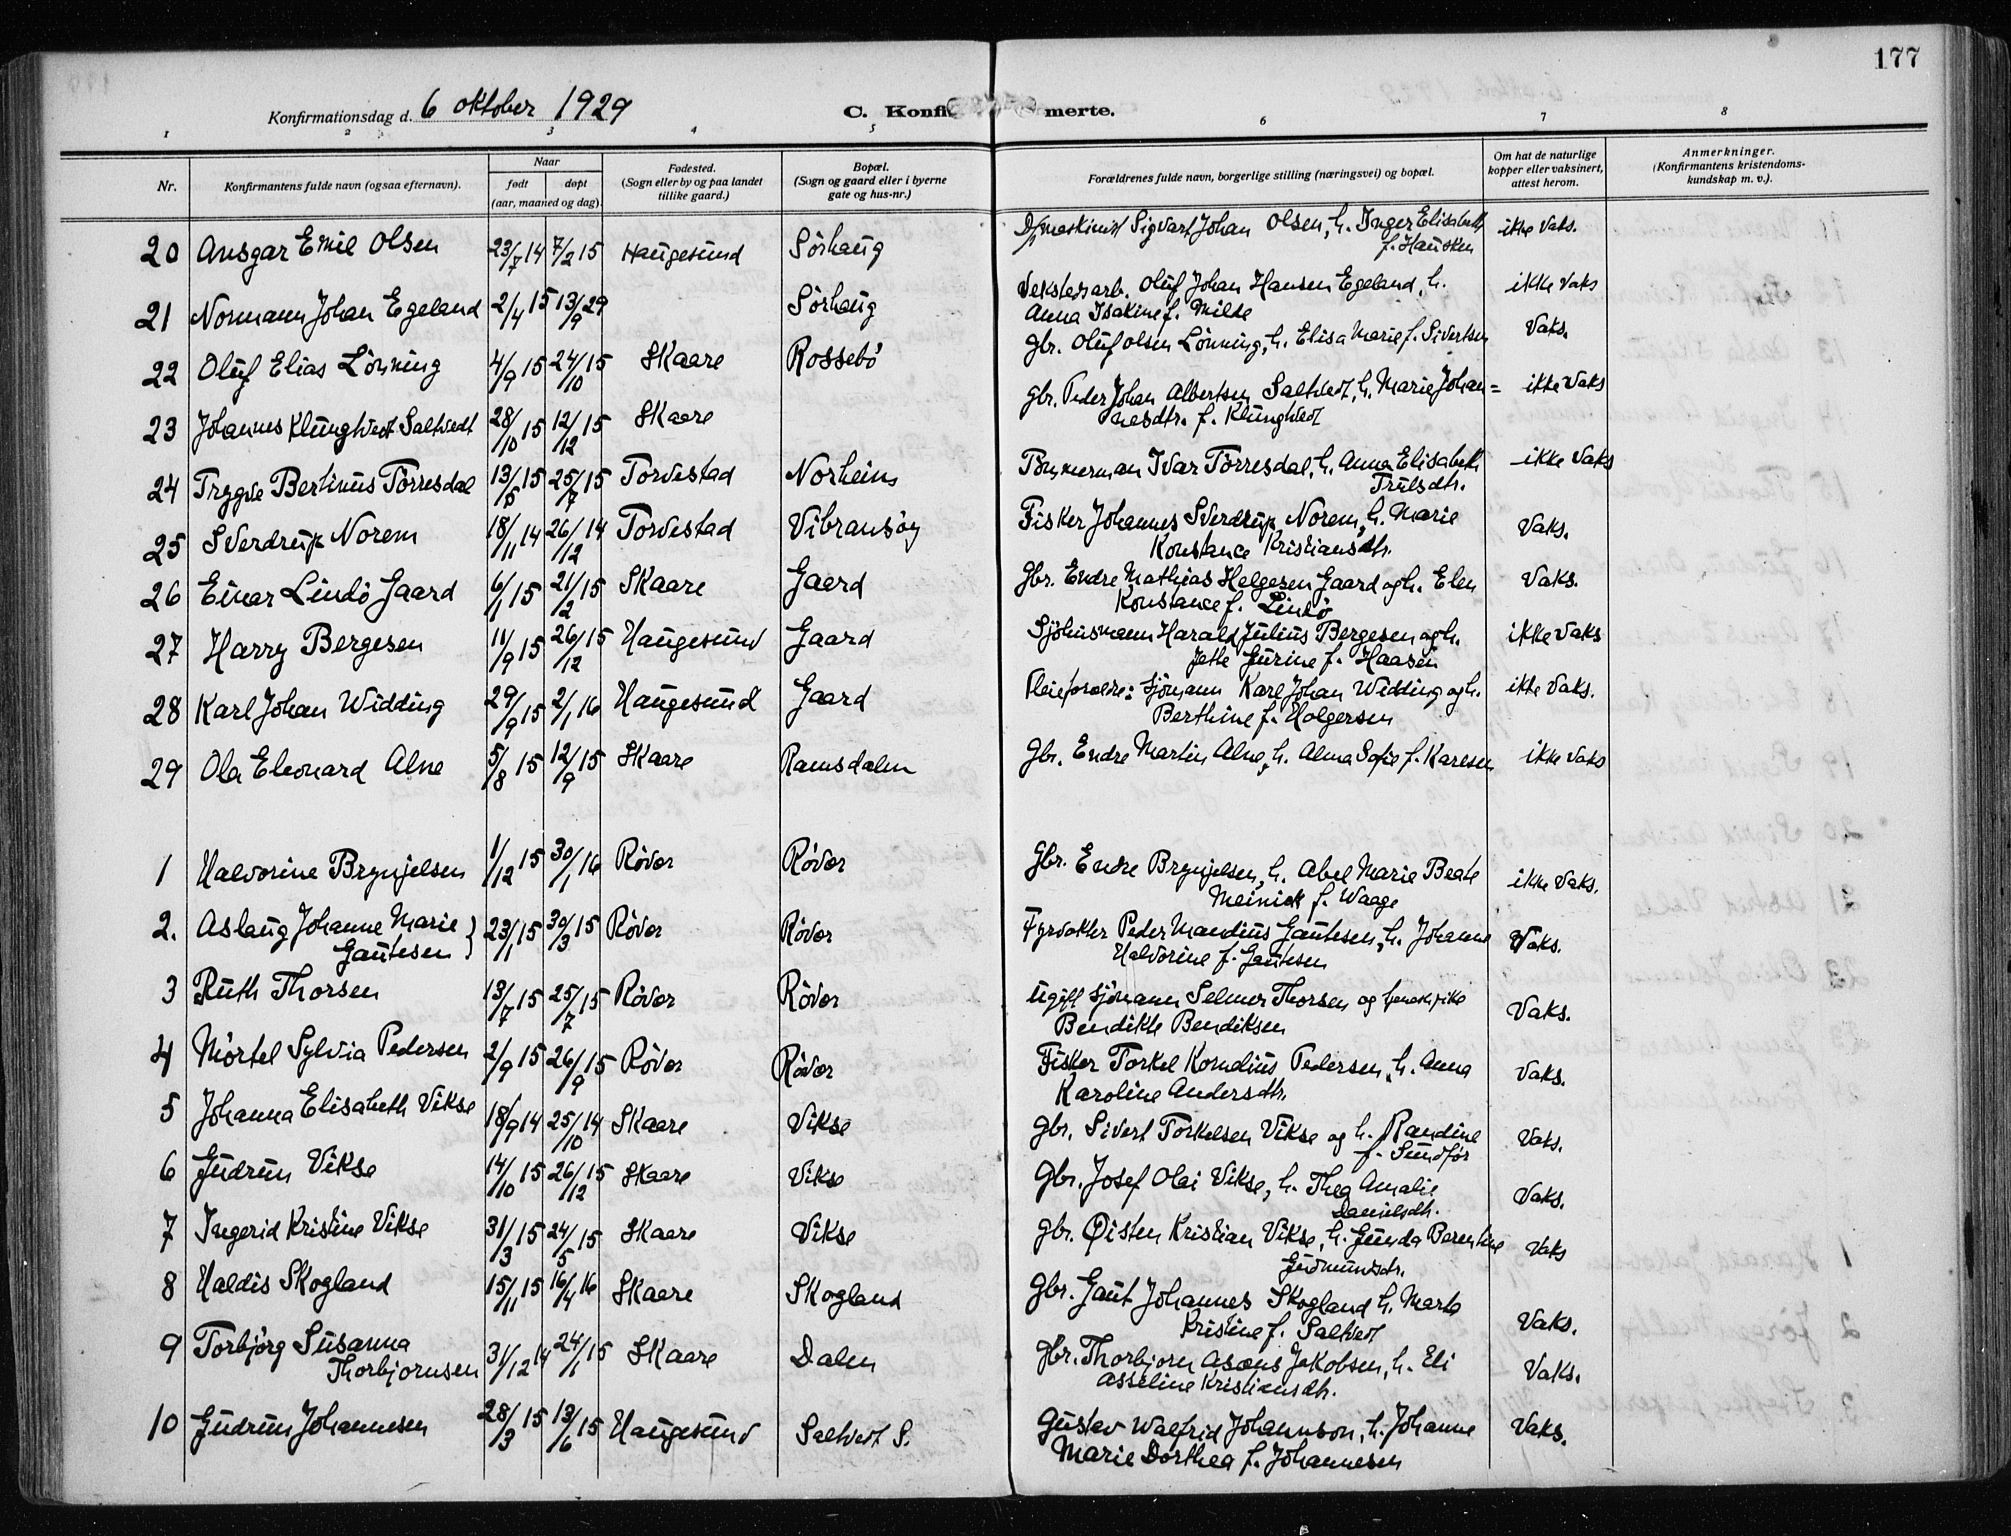 177
Konfirmationsdag d. 6 oktober 1929 C. Konfi merte.
1 2 3 4 5 6 7 8
Nr. Konfirmantens fulde navn (ogsaa efternavn). Naar født døpt (aar, maaned og dag). Fødested. (Sogn eller by og paa landet tillike gaard.) Bopæl. (Sogn og gaard eller i byerne gate og hus-nr.) Forældrenes fulde navn, borgerlige stilling (næringsvei) og bopæl. Om hat de naturlige kopper eller vaksinert, attest herom. Anmerkninger. (Konfirmantens kristendoms-kundskap m. v.).
20 Ansgar Emil Olsen 23/7 14 7/2 15 Haugesund Sörhaug D/maskinist Sigvart Johan Olsen, h. Inger Elisabeth ikke vaks.
f. Hausken
21 Normann Johan Egeland 2/4 15 13/9 29 Sörhaug Verkstedsarb. Oluf Johan Hansen Egeland, h. ikke vaks
Anna Isakine f. Milde
22 Oluf Elias Lönning 4/9 15 24/10 15 Skaare Rossebö gbr. Oluf Olsen Lönning, h. Elisa Marie f. Sivertsen Vaks.
23 Johannes Klungtvedt Saltvedt 28/10 15 12/12 15 Skaare gbr. Peder Johan Albertsen Saltvedt, h. Marie Johan= ikke vaks
nesdtr. f. Klungtvedt
24 Trygve Bertinus Törresdal 13/5 15 25/7 15 Torvestad Norheim Tömmerman Ivar Törresdal, h. Anna Elisabeth ikke vaks
Trulsdtr.
25 Sverdrup Norem 18/11 14 26/12 14 Torvestad Vibransöy Fisker Johannes Sverdrup Norem, h. Marie Vaks.
Konstance Kristiansdtr.
26 Einar Lindö Gaard 6/1 15 21/2 15 Skaare Gaard gbr. Endre Mathias Helgesen Gaard og h. Elen Vaks.
Konstance f. Lindö
27 Harry Bergesen 11/9 15 26/12 15 Haugesund Gaard Sjömann Harald Julius Bergesen og h. ikke vaks
Jette Gurine f. Haasen
28 Karl Johan Widding 29/9 15 2/1 16 Haugesund Gaard Pleieforældre: sjömann Karl Johan Widding og h. ikke vaks.
Berthine f. Holgersen
29 Ola Eleonard Alne 5/8 15 12/9 15 Skaare Ramsdalen gbr. Endre Martin Alne, h. Alma Sofie f. Karesen ikke vaks
1 Halvorine Brynjelsen 1/12 15 30/1 16 Rövær Rövær gbr. Endre Brynjelsen, h. Abel Marie Beate ikke vaks.
Meinick f. Waage
2. Aslaug Johanne Marie 23/1 15 30/3 15 Rövær Rövær Fyrvokter Peder Mandius Gautesen, h. Johanne Vaks.
Gautesen Halvorine f. Gautesen
3 Ruth Thorsen 13/7 15 25/7 15 Rövær Rövær ugift sjömann Selmer Thorsen og tjenestpike Vaks.
Bendikte Bendiksen
4 Mörtel Sylvia Pedersen 2/9 15 26/9 15 Rövær Rövær Fisker Torkel Kornelius Pedersen, h. Anna Vaks.
Karoline Andersdtr.
5 Johanna Elisabeth Vikse 18/9 14 25/10 14 Skaare Vikse gbr. Sivert Torkelsen Vikse og h. Randine Vaks.
f. Sundför
6 Gudrun Vikse 14/10 15 26/12 15 Skaare Vikse gbr. Josef Olai Vikse, h. Thea Amalie Vaks.
Danielsdtr.
7 Ingerid Kristine Vikse 31/3 15 24/5 15 Skaare Vikse gbr. Øisten Kristian Vikse, h. Gunda Berentine Vaks
Gudmundsdtr.
8 Haldis Skogland 15/11 15 16/4 16 Skaare Skogland gbr. Gaut Johannes Skogland h. Marta Vaks.
Kristine f. Saltvedt
9 Torbjörg Susanna 31/12 14 24/1 15 Skaare Dalen gbr. Thorbjorn Asæus Jakobsen, h. Eli Vaks.
Thorbjornsen Asseline Kristiansdtr.
10 Gudrun Johannesen 28/3 15 13/6 15 Haugesund Saltvedt S. Gustav Walfrid Johannson, h. Johanne Vaks.
Marie Dorthea f. Johannesen